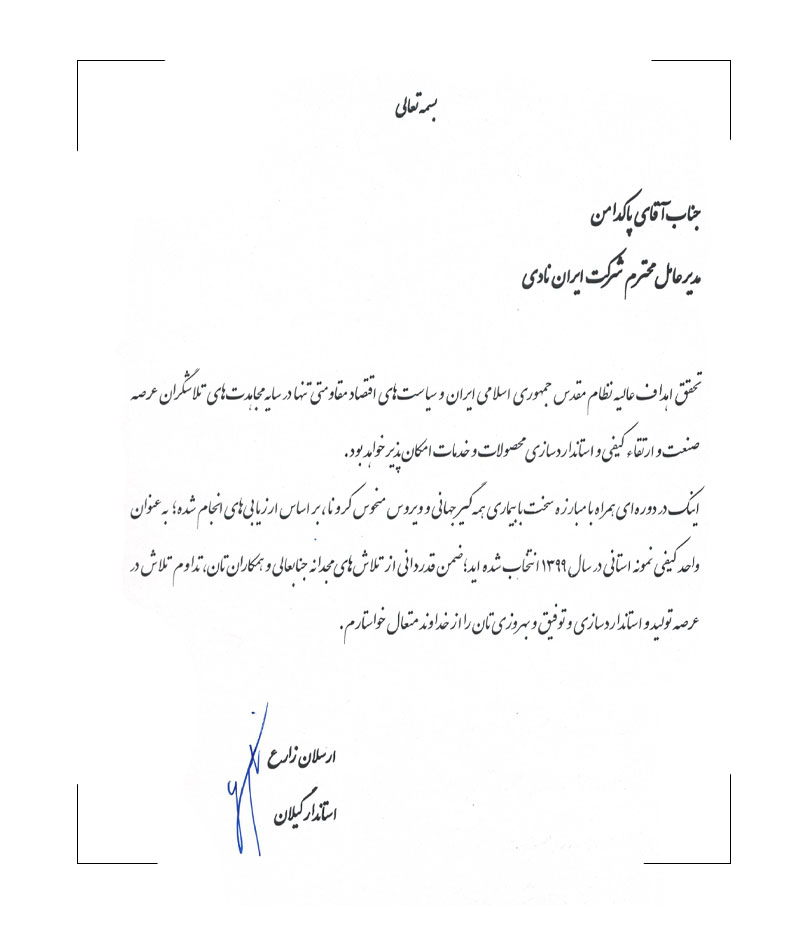 بسمه تعالی
جناب آقای پاکدامن
مدیرعامل محترم شرکت ایران نادی
تحقق اهداف عالیه نظام مقدس جمهوری اسلامی ایران و سیاست‌های اقتصاد مقاومتی تنها در سایه مجاهدت‌های تلاشگران عرصه
صنعت و ارتقاء کیفی و استانداردسازی محصولات و خدمات امکان‌پذیر خواهد بود.
اینک در دوره‌ای همراه با مبارزه سخت با بیماری همه گیر جهانی و ویروس منحوس کرونا، بر اساس ارزیابی‌های انجام شده؛ به عنوان
واحد کیفی نمونه استانی در سال ۱۳۹۹ انتخاب شده اید؛ ضمن قدردانی از تلاش‌های مجدانه جنابعالی و همکاران‌تان، تداوم تلاش در
عرصه تولید و استانداردسازی و توفیق و بهروزی تان را از خداوند متعال خواستارم.
ارسلان زارع
استاندار گیلان